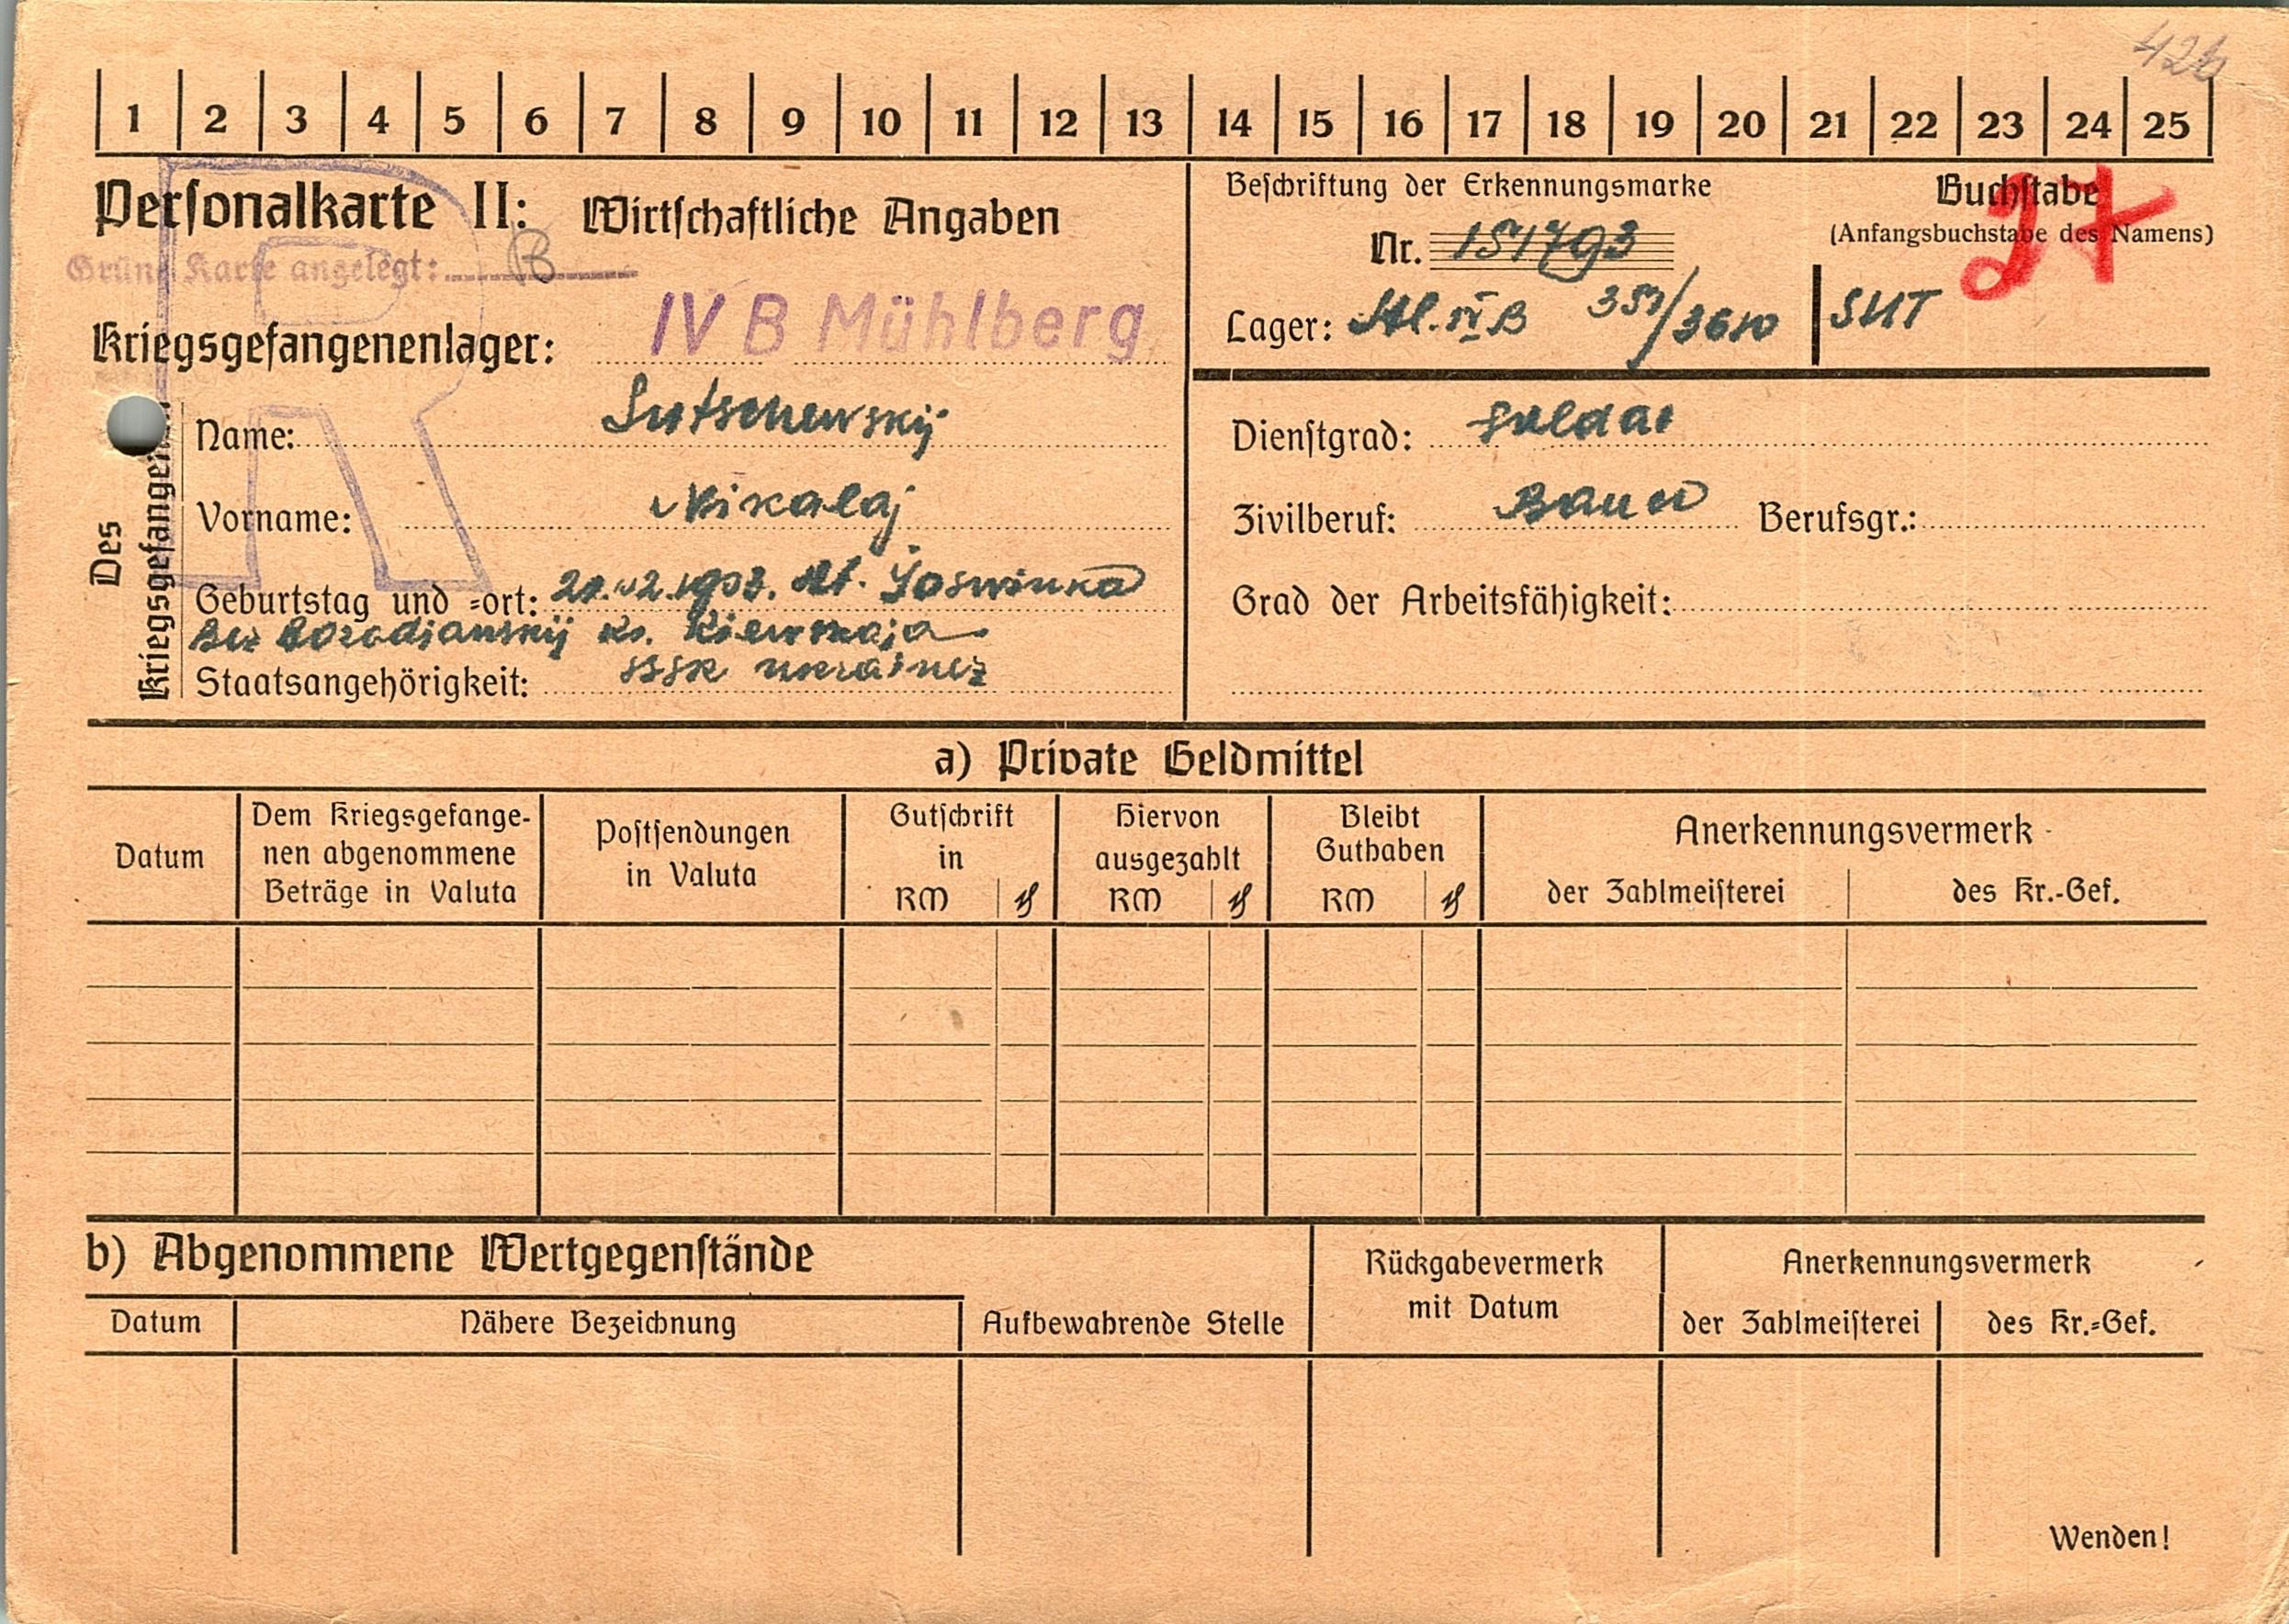 426
1 2 3 4 5 6 7 8 9 10 11 12 13 14 15 16 17 18 19 20 21 22 23 24 25
Personalkarte II: Wirtschaftliche Angaben
Grüne Karte angelegt: B
Kriegsgefangenenlager: IV B Mühlberg
Beschriftung der Erkennungsmarke
Nr. 151793
Lager: Stl. IV B
Buchstabe
(Anfangsbuchstabe des Namens)
SUT
R
Des Kriegsgefangenen
Name: Sutschewskij
Vorname: Nikalaj
Geburtstag und =ort: 1903.
Kiewskaja
Staatsangehörigkeit: SSSR Ukrainez
Dienstgrad: Soldat
Zivilberuf: Bauer Berufsgr.:
Grad der Arbeitsfähigkeit:
a) Private Geldmittel
Datum
Dem Kriegsgefange-
nen abgenommene
Beträge in Valuta
Postsendungen
in Valuta
Gutschrift
in
RM ₰
Hiervon
ausgezahlt
RM ₰
Bleibt
Guthaben
RM ₰
Anerkennungsvermerk
der Zahlmeisterei des Kr.-Gef.
b) Abgenommene Wertgegenstände
Datum Nähere Bezeichnung Aufbewahrende Stelle
Rückgabevermerk
mit Datum
Anerkennungsvermerk
der Zahlmeisterei des Kr.=Gef.
Wenden!